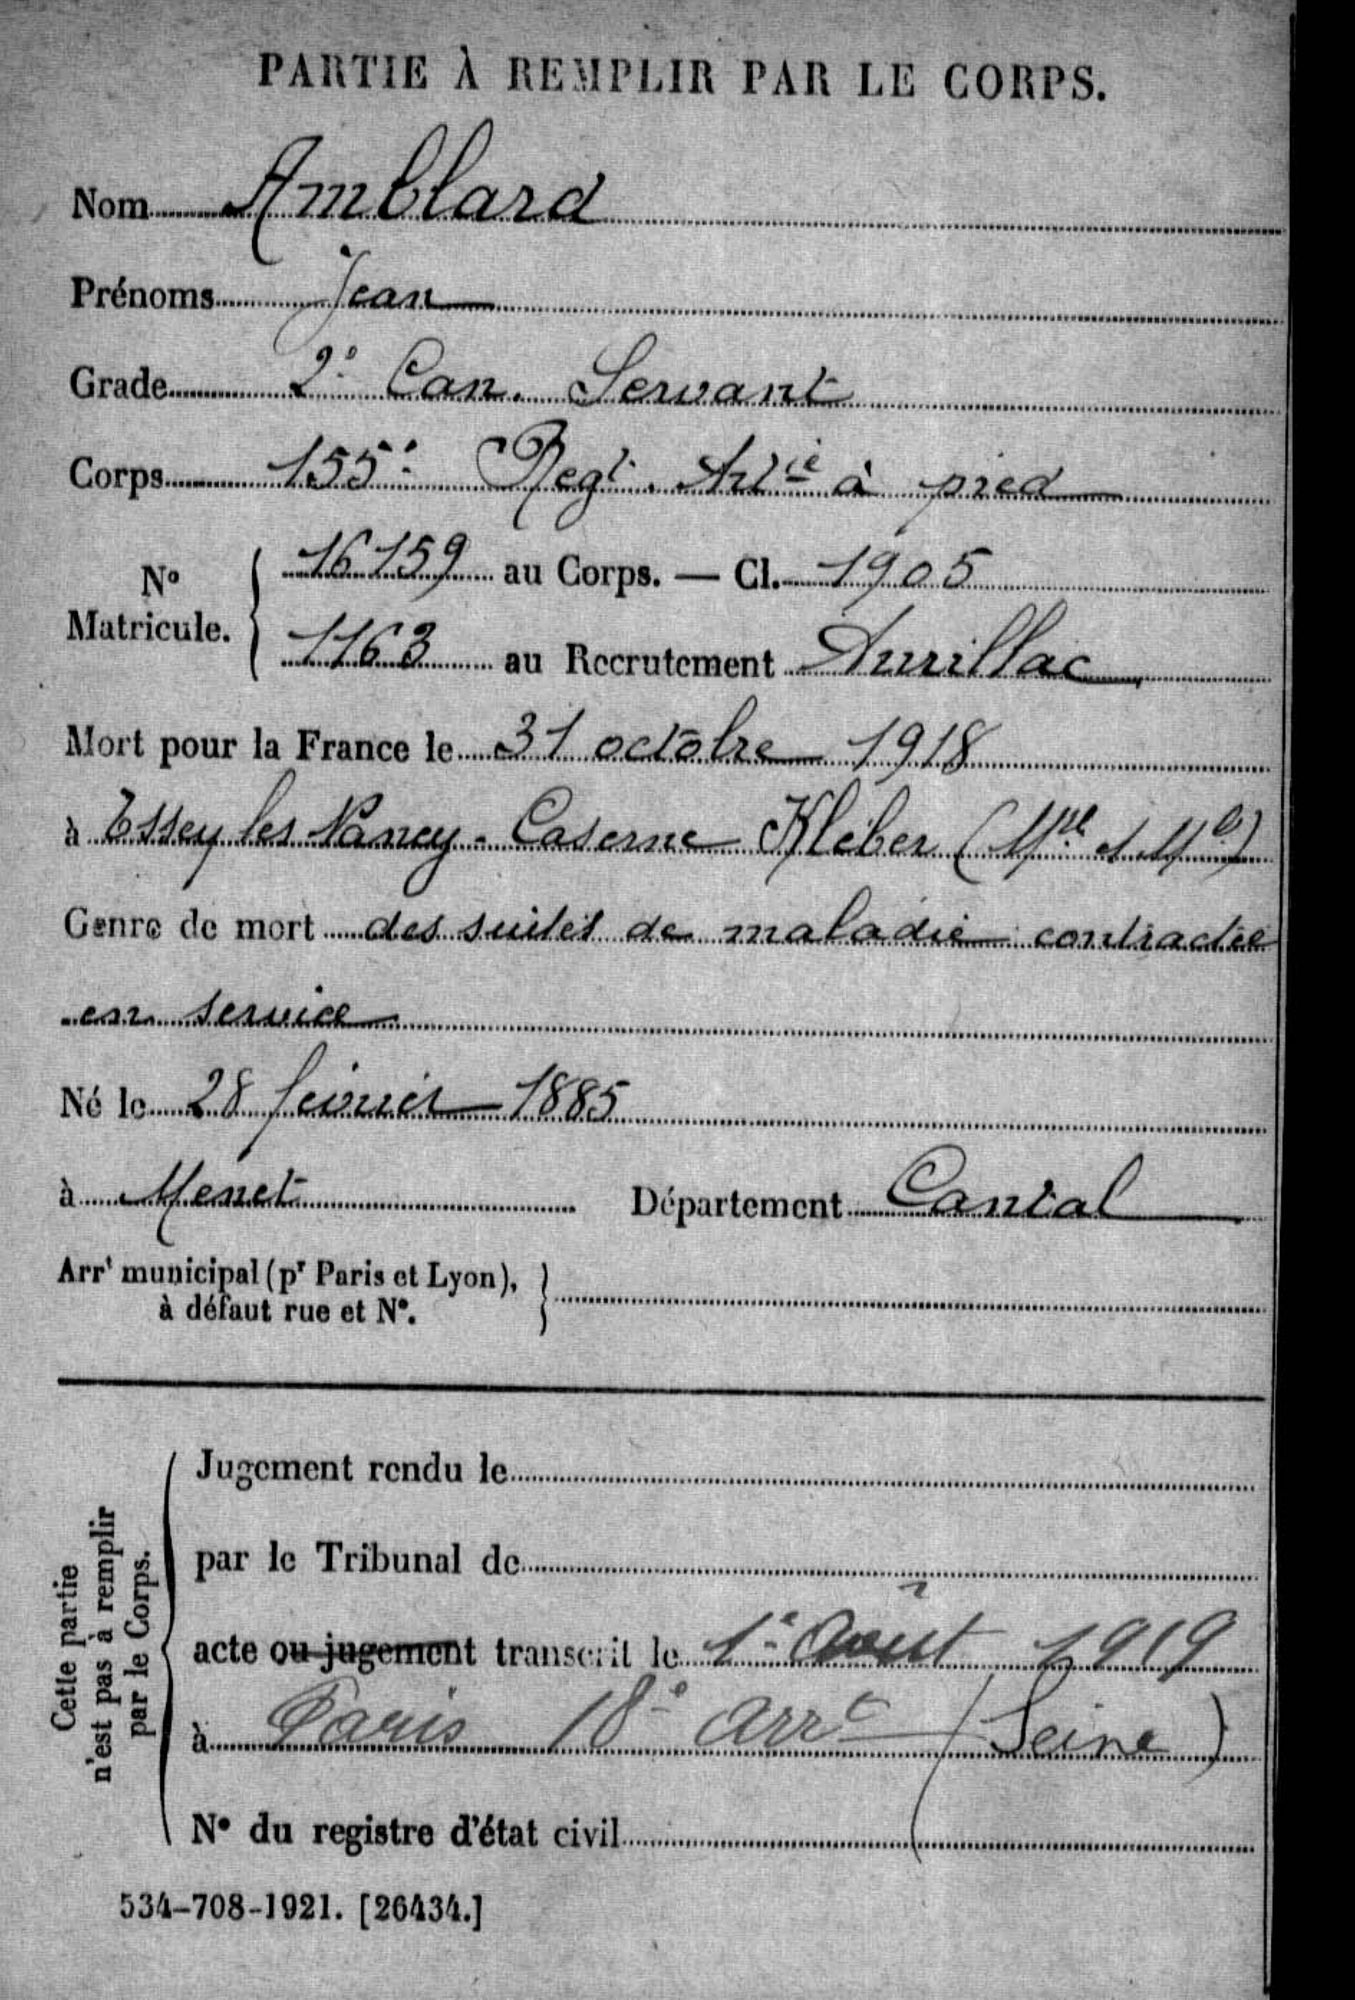 PARTIE À REMPLIR PAR LE CORPS.
Nom Amblard
Prénoms Jean
Grade 2e Can. Servant
Corps 155e Regt. Artie à pied
No Matricule. { 16159 au Corps. — Cl. 1905
1163 au Recrutement Aurillac
Mort pour la France le 31 octobre 1918
à Essey les Nancy - Caserne Kléber (Mthe et Mlle)
Genre de mort des suites de maladie contractée
en service
Né le 28 février 1885
à Menet Département Cantal
Arrt municipal (pr Paris et Lyon), à défaut rue et No. }
Cette partie n'est pas à remplir par le Corps.
Jugement rendu le
par le Tribunal de
acte ou jugement transcrit le 1e Août 1919
à Paris 18e arrt (Seine)
No du registre d'état civil
534-708-1921. [26434.]